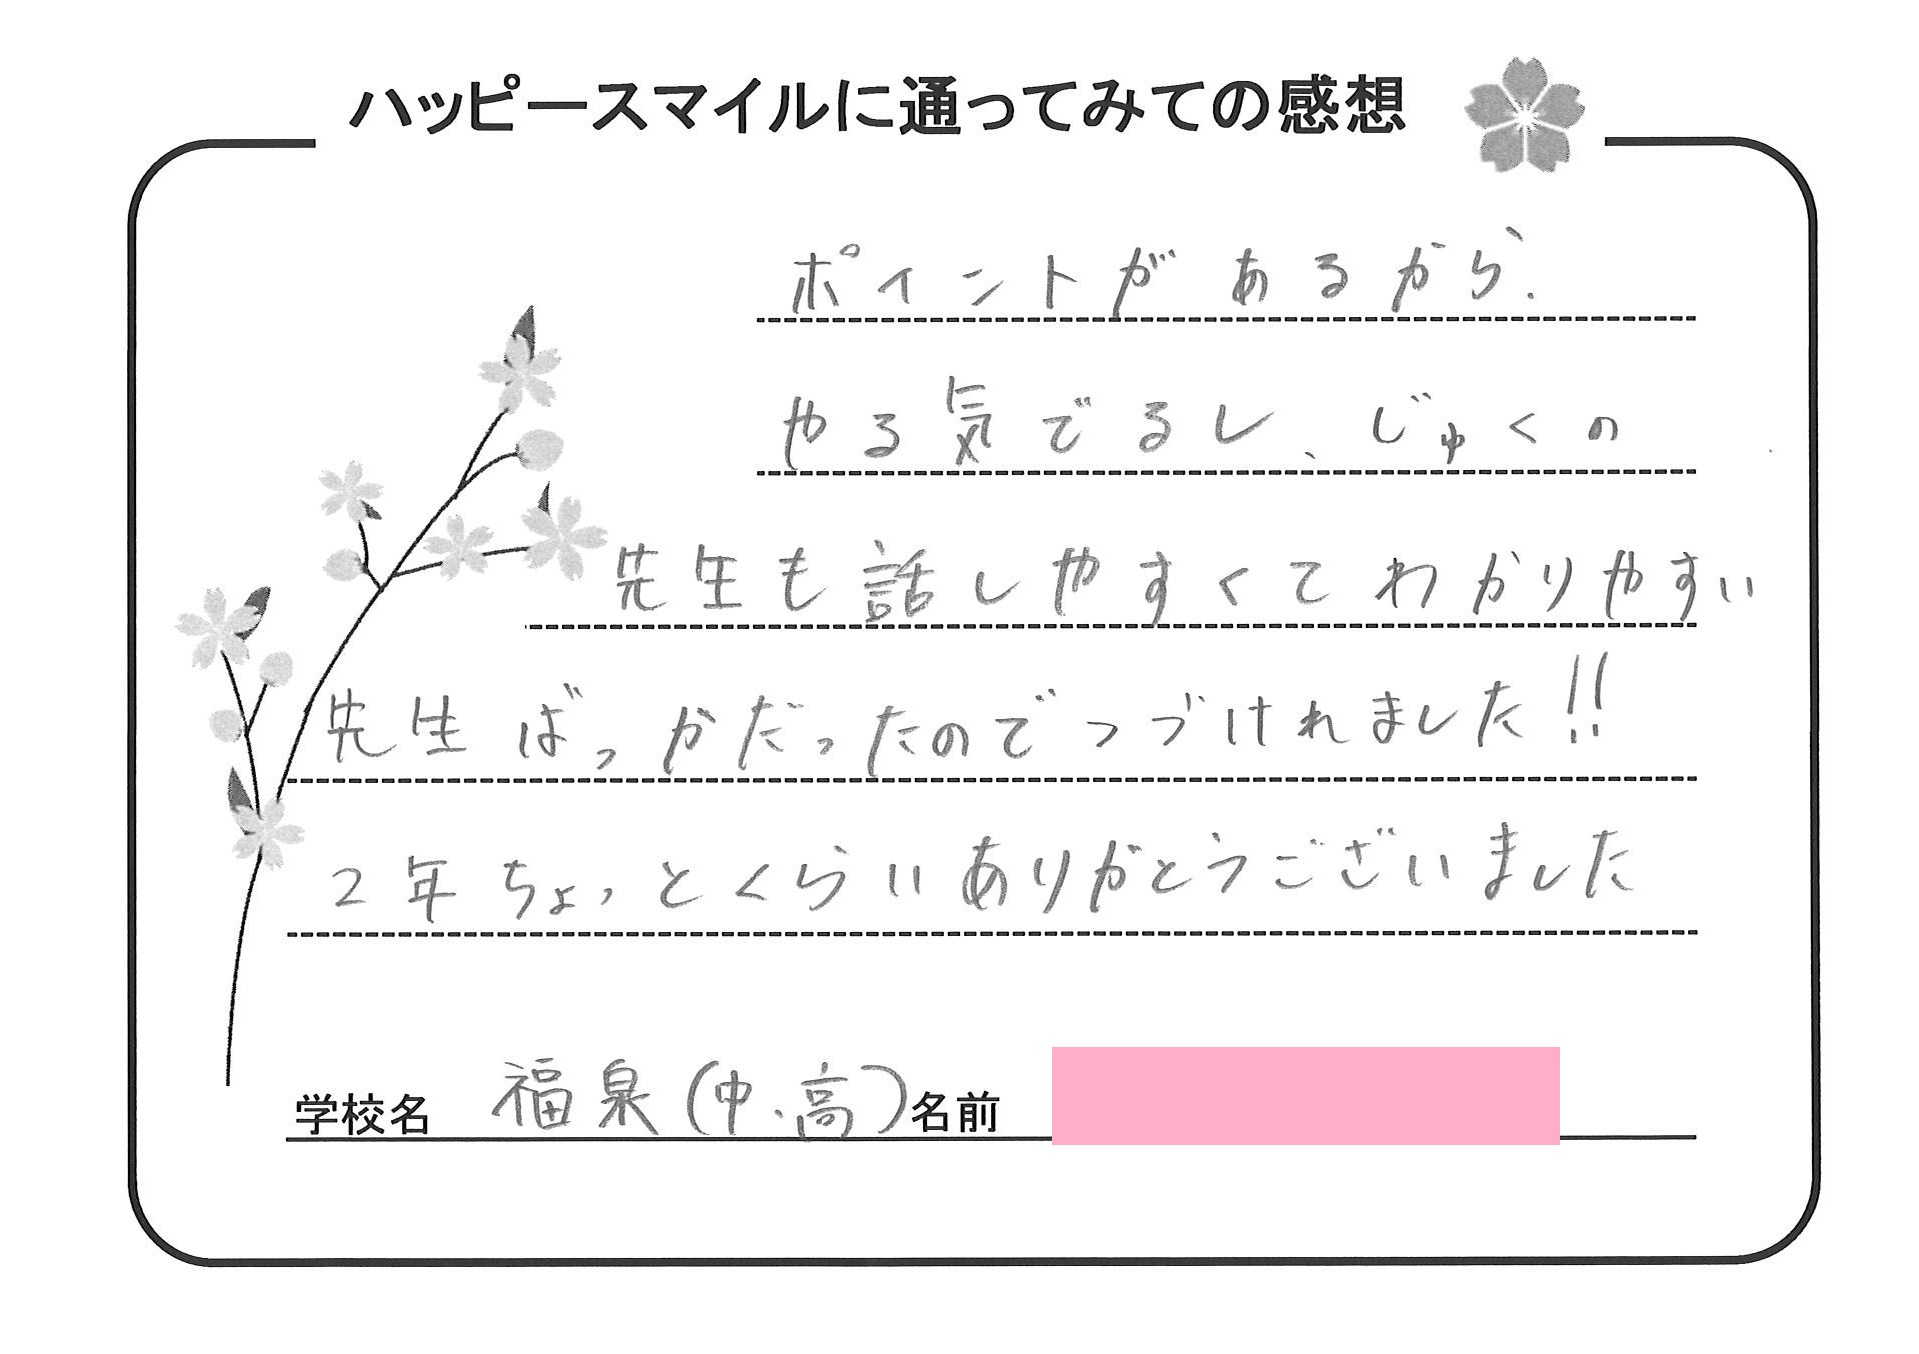 ハッピースマイルに通ってみての感想
ポイントがあるから、
やる気でるし、じゅくの
先生も話しやすくてわかりやすい
先生ばっかだったのでつづけれました!!
2年ちょっとくらいありがとうございました
学校名 福泉(中・高) 名前